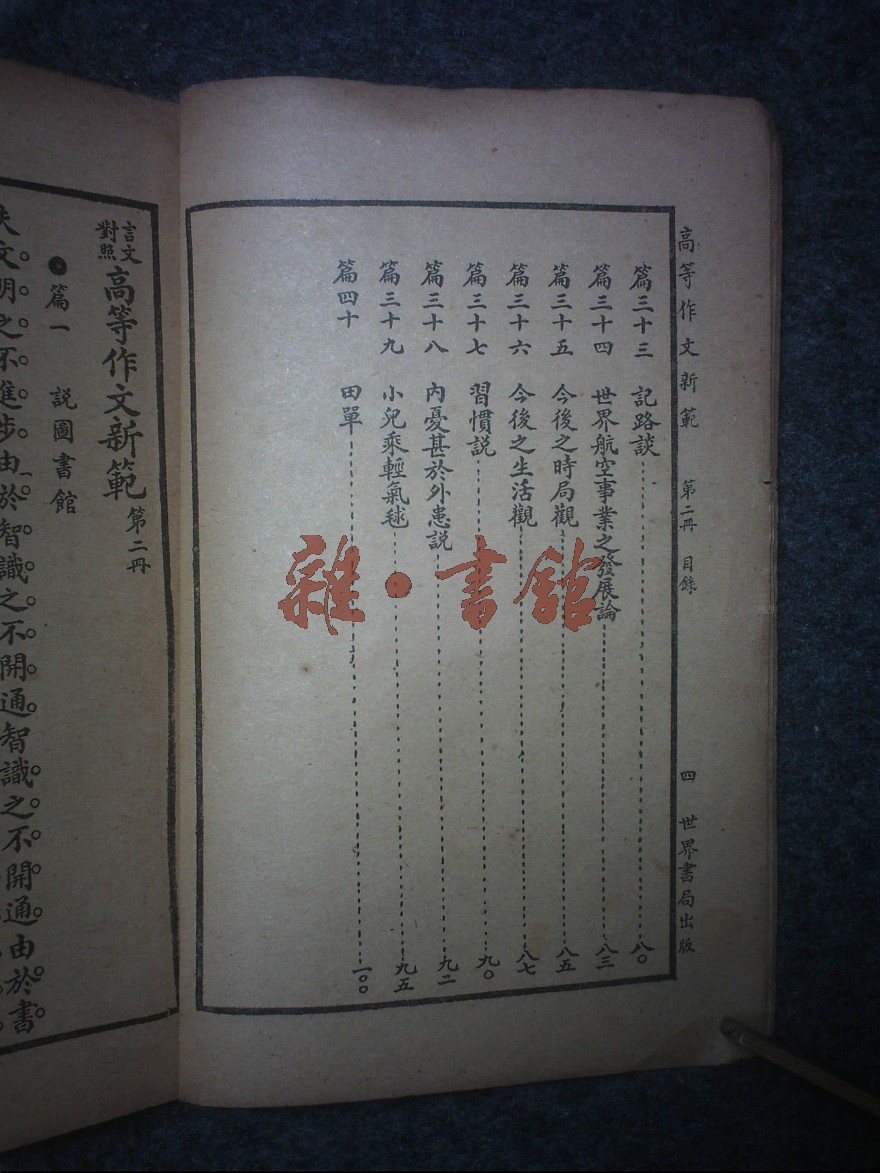 高等作文新範 第二冊 目錄 四 世界書局出版
篇三十三 記路談 八〇
篇三十四 世界航空事業之發展論 八三
篇三十五 今後之時局觀 八五
篇三十六 今後之生活觀 八七
篇三十七 習慣説 九〇
篇三十八 內憂甚於外患説 九二
篇三十九 小兒乘輕氣毬 九五
篇四十 田單 一〇〇
雜·書館
言文對照 高等作文新範 第二冊
●篇一 説圖書館
夫文明之不進步。由於智識之不開通。智識之不開通。由於書